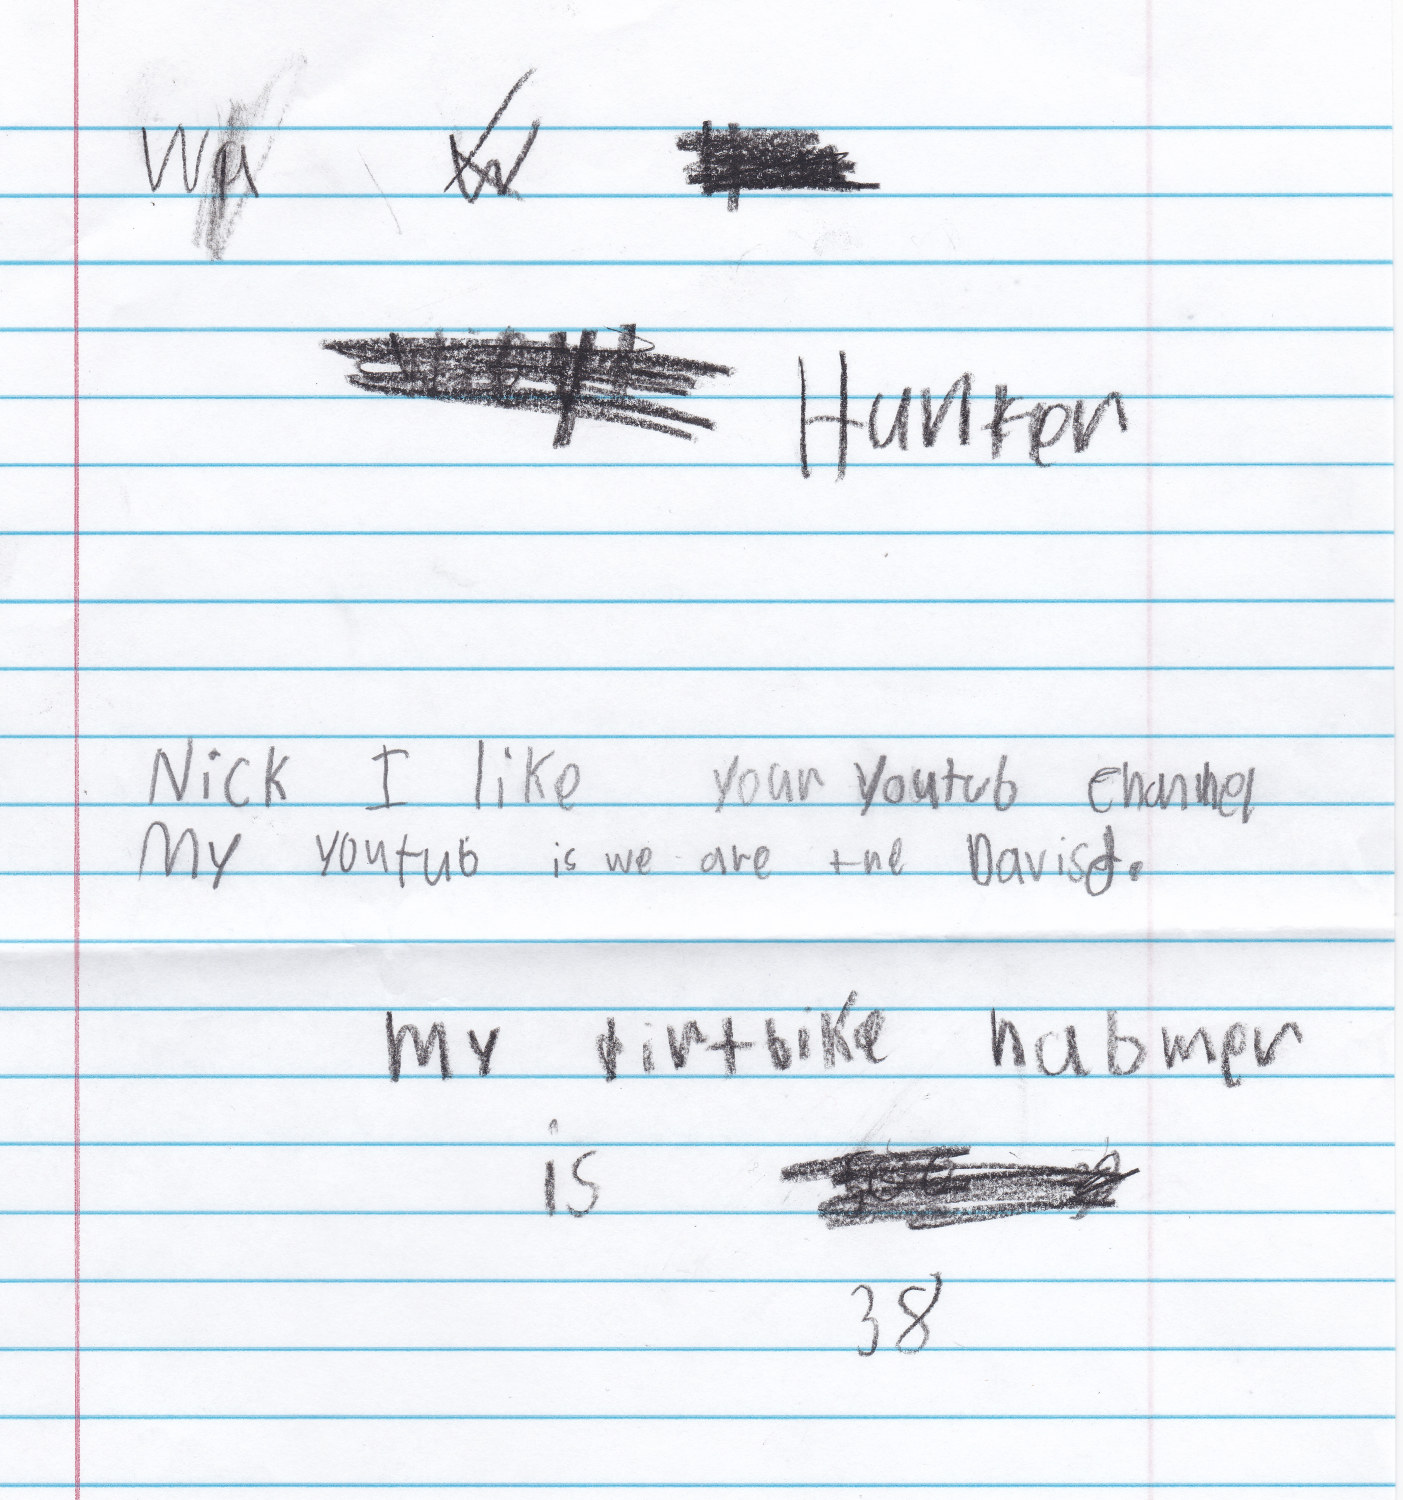 Hunter
Nick I like your youtub channel
My youtub is we are the Davisd.
My tirtbike nabmer
is
38